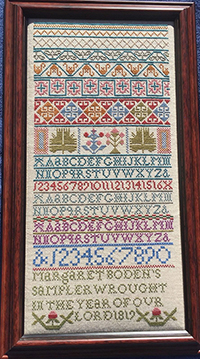 ABCDEFGHIJKLM
NOPQRSTUVWXYZ
12345678910111213141516
ABCDEFGHIJKLM
NOPQRSTUVWXYZ
ABCDEFGHIJKLM
NOPQRSTUVWXYZ
&1234567890
MARGARET BODEN'S
SAMPLER WROUGHT
IN THE YEAR OF OUR
LORD 1819